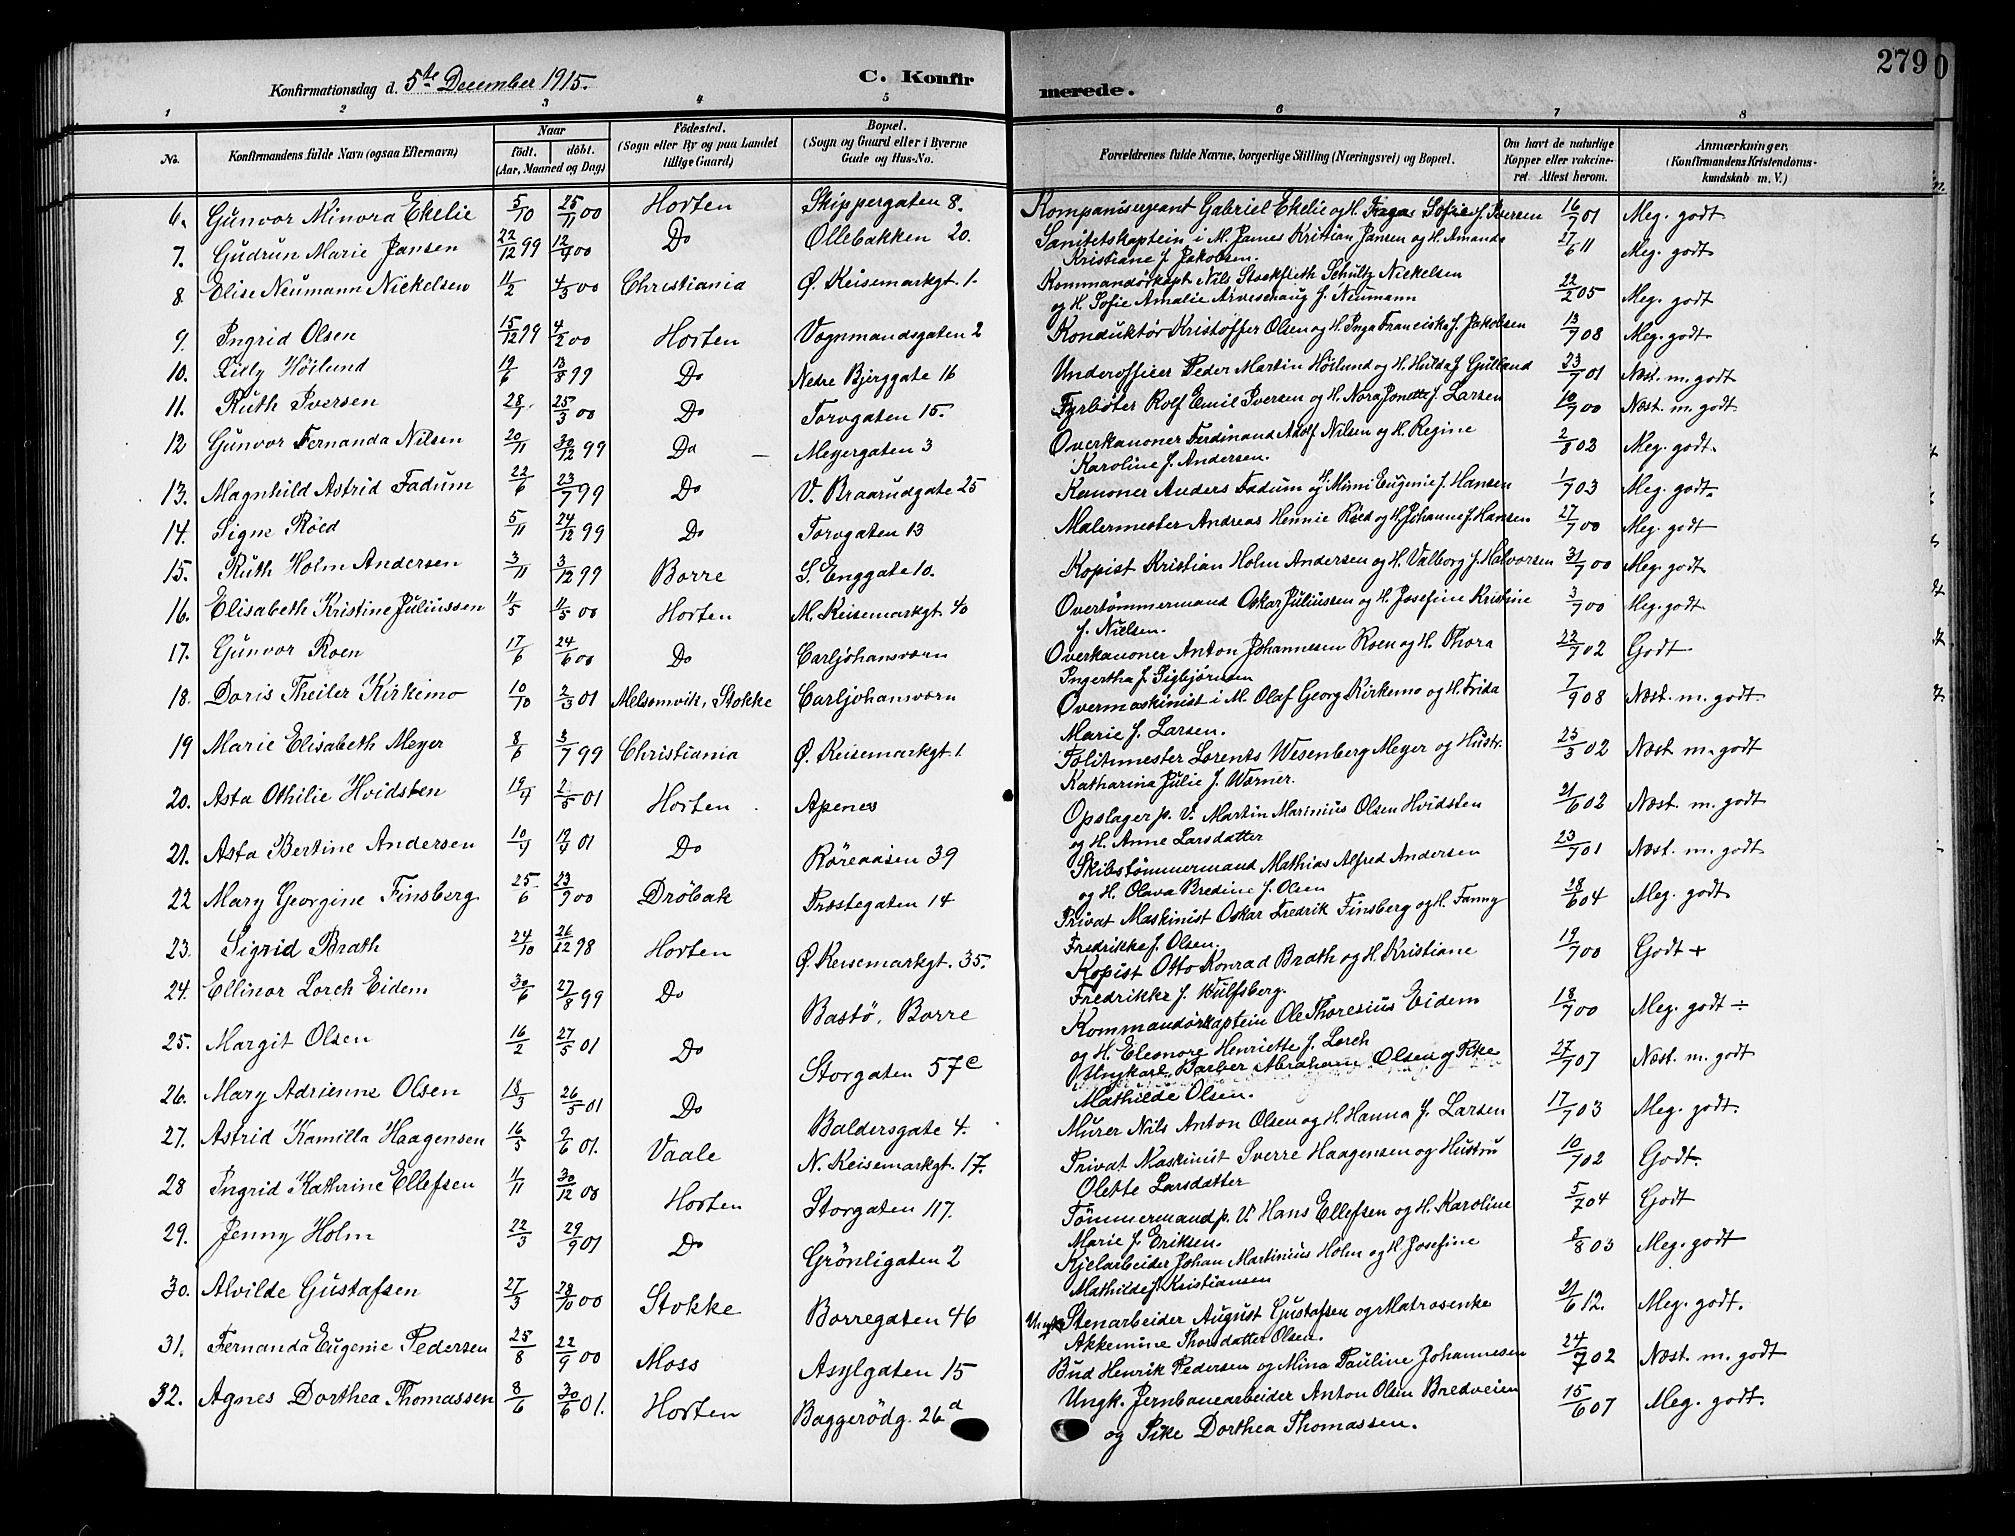 279
Konfirmationsdag d. 5te December 1915.
C. Konfirmerede.
1 2 3 4 5 6 7 8
No.
Konfirmandens fulde Navn (ogsaa Efternavn)
Naar
födt. döbt.
(Aar, Maaned og Dag)
Födested.
(Sogn eller By og paa Landet
tillige Gaard)
Bopæl.
(Sogn og Gaard eller i Byerne
Gade og Hus-No.
Forældrenes fulde Navne, borgerlige Stilling (Næringsvei) og Bopæl.
Om havt de naturlige
Kopper eller vaccineret. Attest herom.
Anmærkninger.
(Konfirmandens Kristendomskundskab m. V.)
6. Gunvor Minora Ekelie 5/10 25/11 00 Horten Skippergaten 8. Kompanisergeant Gabriel Ekelie og H. Sofie f. Iversen 16/7 01 Meg. godt
7. Gudrun Marie Jansen 22/12 99 12/4 00 Do Ollebakken 20. Sanitetskaptein i M. James Kristian Jansen og H. Amanda
Kristiane f. Jakobsen. 27/6 11 Meg. godt
8 Elise Neumann Nickelsen 11/2 4/3 00 Christiania Ø. Keisemarkgt. 1. Kommandörkapt Nils Stockfleth Schultz Nickelsen
og H. Sofie Amalie Arveschaug f. Neumann 22/2 05 Meg. godt
9. Ingrid Olsen 15/12 99 4/2 00 Horten Vognmandsgaten 2 Konduktør Kristoffer Olsen og H. Inga Franciska f. Jakobsen 13/7 08 Meg. godt
10. Lilly Höilund 19/6 13/8 99 Do Nedre Bjerggate 16 Underofficer Peder Martin Höilund og H. Hulda f. Gulland 23/7 01 Næst. m. godt
11. Ruth Iversen 28/1 25/3 00 Do Torvgaten 15. Fyrbøter Rolf Emil Iversen og H. Nora Jonette f. Larsen 10/7 00 Næst. m. godt
12 Gunvor Fernanda Nilsen 20/11 30/12 99 Do Meyergaten 3 Overkanoner Ferdinand Adolf Nilsen og H. Regine
Karoline f. Andersen. 2/8 02 Meg. godt.
13. Magnhild Astrid Fadum 22/6 23/7 99 Do V. Braarudgate 25 Kanoner Anders Fadum og H. Mimi Eugenie f. Hansen 1/7 03 Meg. godt.
14. Signe Röed 5/11 24/12 99 Do Torvgaten 13 Malermester Andreas Hennie Röed og H. Johanne f. Hansen 27/7 00 Meg. godt
15. Ruth Holm Andersen 3/11 3/12 99 Borre S. Enggate 10. Kopist Kristian Holm Andersen og H. Valborg f. Halvorsen 31/7 00 Meg. godt
16. Elisabeth Kristine Juliussen 11/5 00 Horten M. Keisemarkgt. 40 Overtömmermand Oskar Juliussen og H. Josefine Kristine
f. Nielsen. 3/7 00 Meg. godt
17. Gunvor Roen 17/6 24/6 00 Do Carljohansværn Overkanoner Anton Johannesen Roen og H. Thora
Ingertha f. Sigbjörnsen 22/7 02 Godt
18. Doris Theiler Kirkemo 10/10 2/3 01 Melsomvik, Stokke Carljohansværn Overmaskinist i M. Olaf Georg Kirkemo og H. Frida
Marie f. Larsen. 7/9 08 Næst. m. godt
19 Marie Elisabeth Meyer 8/6 3/7 99 Christiania Ø. Keisemarkgt. 1 Politimester Lorents Wesenberg Meyer og Hustr.
Katharina Julie f. Wørner. 23/3 02 Næst m. godt
20. Asta Othilie Hvidsten 19/4 2/5 01 Horten Apenes Opslager p. V. Martin Marinius Olsen Hvidsten
og H. Anne Larsdatter 21/6 02 Næst. m. godt
21. Asta Bertine Andersen 10/4 19/4 01 Do Röreaasen 39 Skibstömmermand Mathias Alfred Andersen
og H. Olava Bredine f. Olsen 23/7 01 Næst. m. godt.
22 Mary Georgine Finsberg 25/6 23/9 00 Dröbak Præstegaten 14 Privat Maskinist Oskar Fredrik Finsberg og H. Fanny
Fredrikke f. Olsen. 18/6 04 Meg. godt
23. Sigrid Brath 24/10 26/12 98 Horten Ø. Keisemarkgt. 35. Kopist Otto Konrad Brath og H. Kristiane
Fredrikke f. Wulfsberg. 19/7 00 Godt +
24. Ellinor Lorch Eidem 30/6 27/8 99 Do Bastö, Borre Kommandørkaptein Ole Thoresius Eidem
og H. Eleonore Henriette f. Lorch 18/7 00 Meg. godt ÷
25. Margit Olsen 16/2 27/5 01 Do Storgaten 57c Ungkarl Barber Abraham Olsen og Pike
Mathilde Olsen. 27/7 07 Næst. m. godt
26. Mary Adrienne Olsen 18/3 26/5 01 Do Baldersgate 4. Murer Nils Anton Olsen og H. Hanna f. Larsen 17/7 03 Meg. godt.
27. Astrid Kamilla Haagensen 16/5 9/6 01. Vaale N. Keisemarkgt. 17. Privat Maskinist Sverre Haagensen og Hustru
Olette Larsdatter 10/7 02 Godt.
28 Ingrid Kathrine Ellefsen 11/11 30/12 00 Horten Storgaten 117. Tömmermand p. V. Hans Ellefsen og H. Karoline
Marie f. Eriksen. 5/7 04 Godt
29. Jenny Holm 22/3 29/9 01 Do Grönligaten 2 Kjelarbeider Johan Martinius Holm og H. Josefine
Mathilde f. Kristiansen 8/8 03 Meg. godt
30. Alvilde Gustafsen 27/3 28/10 00 Stokke Borregaten 46 Ungk. Stenarbeider August Gustafsen og Matrosenke
Akkemine Thorsdatter Olsen. 21/6 12. Meg. godt.
31. Fernanda Eugenie Pedersen 25/8 22/9 00 Moss Asylgaten 15 Bud Henrik Pedersen og Mina Pauline Johannesen 24/7 02 Næst. m. godt
32. Agnes Dorthea Thomassen 8/6 30/6 01. Horten Baggerödg. 26d Ungk. Jernbanearbeider Anton Olsen Bredveien
og Pike Dorthea Thomassen. 15/6 07 Meg. godt.